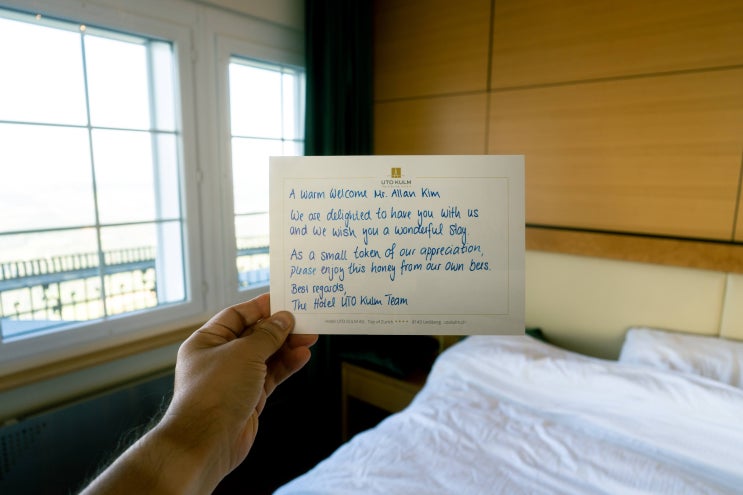 UTO KULM
A Warm Welcome Mr. Allan Kim
We are delighted to have you with us
and we wish you a wonderful stay.
As a small token of our appreciation,
please enjoy this honey from our own bees.
Best regards,
The Hotel UTO Kulm Team
Hotel UTO KULM AG Top of Zurich **** 8143 Uetliberg utokulm.ch